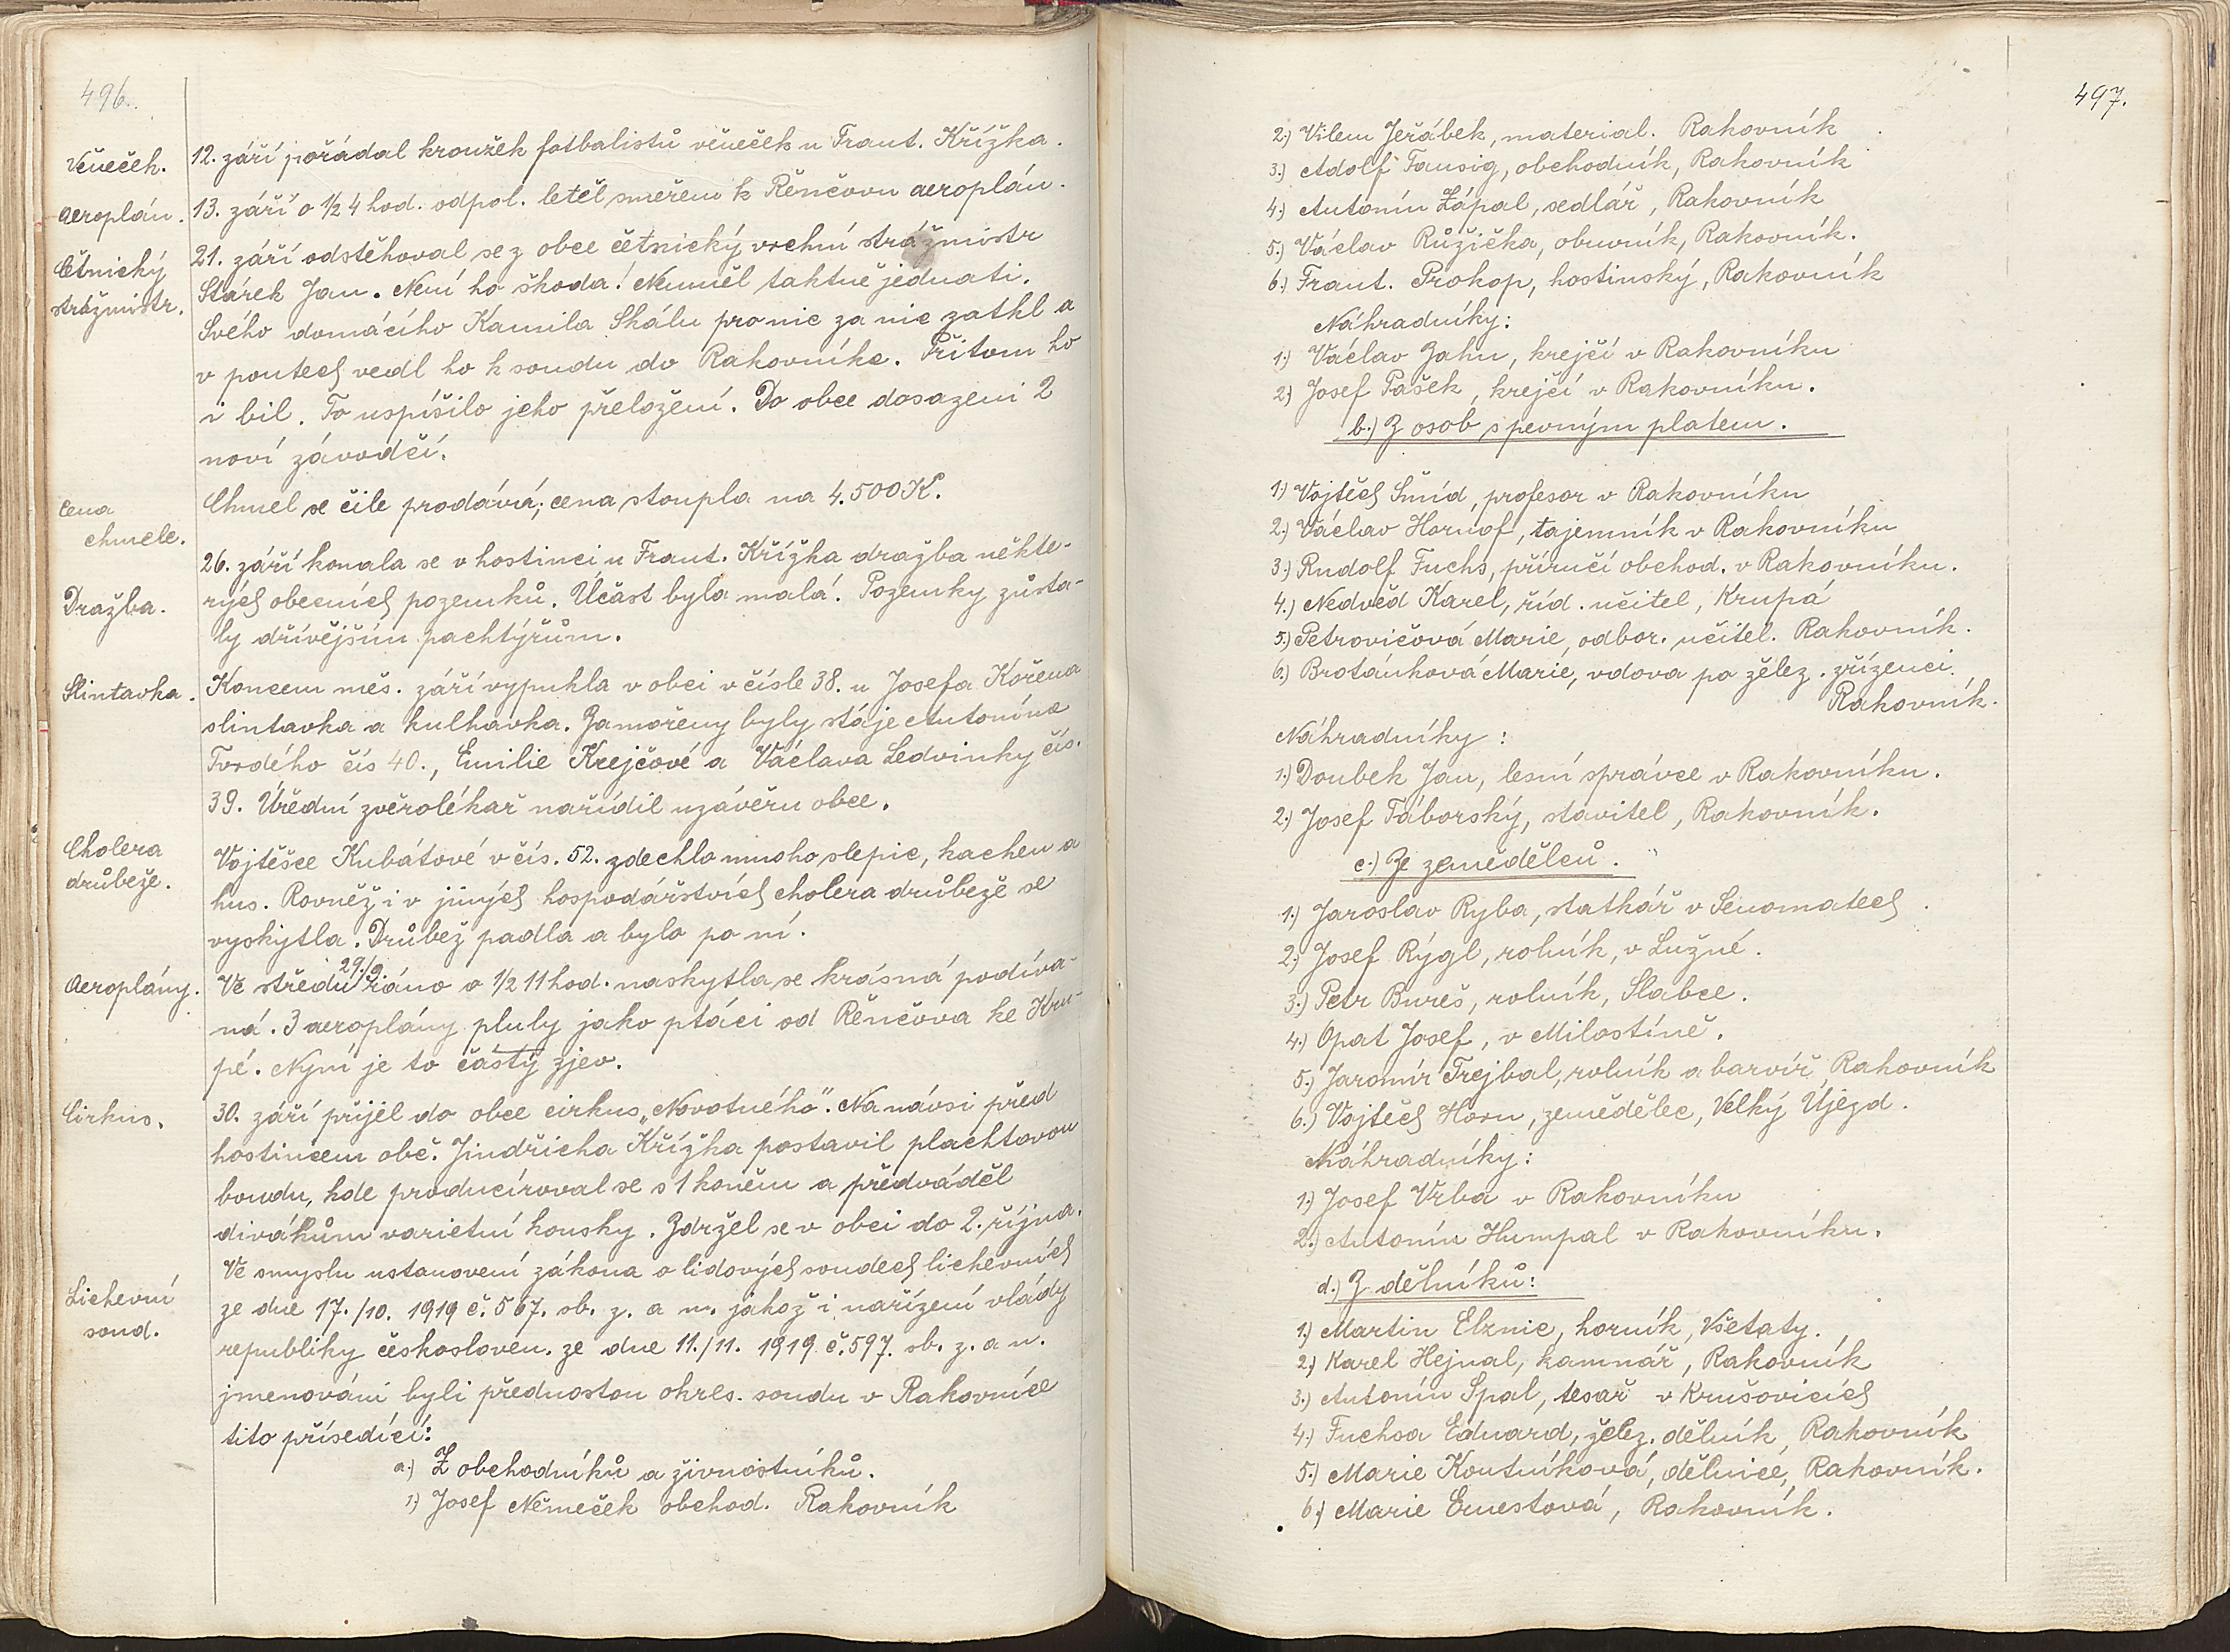 496.
Věneček.
12. září pořádal kroužek fotbalistů věneček u Frant. Křížka.
Aeroplán.
13. září o 1/2 4 hod. odpol. letěl směrem k Řenčovu aeroplán.
Četnický
strážmistr.
21. září odstěhoval se z obce četnický vrchní strážmistr
Stárek Jan. Není ho škoda! Neuměl taktně jednati.
Svého domácího Kamila Skálu pro nic za nic zatkl a
v poutech vedl ho k soudu do Rakovníka. Přitom ho
i bil. To uspíšilo jeho přeložení. Do obce dosazeni 2
noví závodčí.
Cena
chmele.
Chmel se čile prodává; cena stoupla na 4.500 K.
Dražba.
26. září konala se v hostinci u Frant. Křížka dražba někte-
rých obecních pozemků. Účast byla malá. Pozemky zůsta-
ly dřívějším pachtýřům.
Slintavka.
Koncem měs. září vypukla v obci v čísle 38. u Josefa Kořena
slintavka a kulhavka. Zamořeny byly stáje Antonína
Tvrdého čís 40., Emilie Krejčové a Václava Ledvinky čís.
39. Úřední zvěrolékař nařídil uzávěru obce.
Cholera
drůbeže.
Vojtěšce Kubátové v čís. 52. zdechlo mnoho slepic, kachen a
hus. Rovněž i v jiných hospodářstvích cholera drůbeže se
vyskytla. Drůbež padla a bylo po ní.
Aeroplány.
Ve středu 29./9. ráno o 1/2 11 hod. naskytla se krásná podíva-
ná. 3 aeroplány pluly jako ptáci od Řenčova ke Kru-
pé. Nyní je to častý zjev.
Cirkus.
30. září přijel do obce cirkus „Novotného". Na návsi před
hostincem obč. Jindřicha Křížka postavil plachtovou
boudu, kde producíroval se s 1 koněm a předváděl
divákům varietní kousky. Zdržel se v obci do 2. října.
Lichevní
soud.
Ve smyslu ustanovení zákona o lidových soudech lichevních
ze dne 17./10. 1919 č. 567. sb. z. a n. jakož i nařízení vlády
republiky českosloven. ze dne 11./11. 1919 č. 597. sb. z. a n.
jmenováni byli přednostou okres. soudu v Rakovníce
tito přísedící:
a.) Z obchodníků a živnostníků.
1.) Josef Němeček obchod. Rakovník
497.
2.) Vilem Jeřábek, material. Rakovník
3.) Adolf Tausig, obchodník, Rakovník
4.) Antonín Zápal, sedlář, Rakovník
5.) Václav Růžička, obuvník, Rakovník.
6.) Frant. Prokop, hostinský, Rakovník
Náhradníky:
1.) Václav Zahn, krejčí v Rakovníku
2.) Josef Pašek, krejčí v Rakovníku.
b.) Z osob s pevným platem.
1.) Vojtěch Šmíd, profesor v Rakovníku
2.) Václav Hornof, tajemník v Rakovníku
3.) Rudolf Fuchs, příručí obchod. v Rakovníku.
4.) Nedvěd Karel, říd. učitel, Krupá
5.) Petrovičová Marie, odbor. učitel. Rakovník.
6.) Brotánková Marie, vdova po želez. zřízenci.
Rakovník.
Náhradníky:
1.) Doubek Jan, lesní správce v Rakovníku.
2.) Josef Táborský, stavitel, Rakovník.
c.) Ze zemědělců.
1.) Jaroslav Ryba, statkář v Senomatech
2.) Josef Rýgl, rolník, v Lužné.
3.) Petr Bureš, rolník, Slabce.
4.) Opat Josef, v Milostíně.
5.) Jaromír Trejbal, rolník a barvíř Rakovník
6.) Vojtěch Horn, zemědělec, Velký Újezd.
Náhradníky:
1.) Josef Vrba v Rakovníku
2.) Antonín Humpal v Rakovníku.
d.) Z dělníků:
1.) Martin Elznic, horník, Všetaty.
2.) Karel Hejnal, kamnář, Rakovník
3.) Antonín Spal, tesař v Krušovicích
4.) Fuchsa Eduard, želez. dělník, Rakovník
5.) Marie Koutníková, dělnice, Rakovník.
6.) Marie Ernestová, Rakovník.